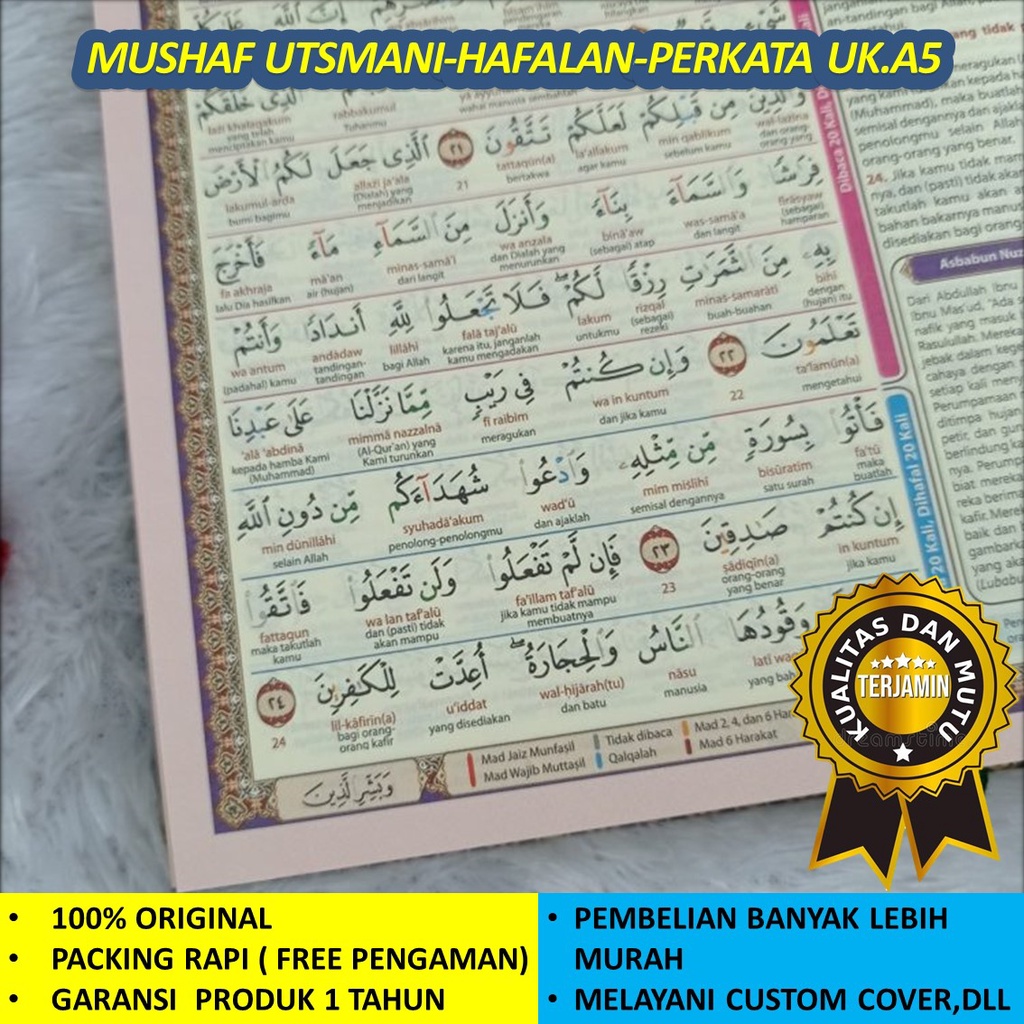 MUSHAF UTSMANI-HAFALAN-PERKATA UK.A5
الَّذِي خَلَقَكُمْ
allażī khalaqakum
rabbakumul
yang telah
Tuhanmu
menciptakan kamu
وَالَّذِينَ مِن قَبْلِكُمْ لَعَلَّكُمْ تَتَّقُونَ ٢١ الَّذِي جَعَلَ لَكُمُ الْأَرْضَ
wal-lażīna min qablikum la'allakum tattaqūn(a) 21 allażī ja'ala lakumul-arḍa
dan orang-orang yang sebelum kamu agar kamu bertakwa (Dialah) yang menjadikan bumi bagimu
فِرَاشًا وَالسَّمَاءَ بِنَاءً وَأَنزَلَ مِنَ السَّمَاءِ مَاءً فَأَخْرَجَ
firāsyaw was-samā'a binā'aw wa anzala minas-samā'i mā'an fa akhraja
(sebagai) hamparan dan langit (sebagai) atap dan Dialah yang menurunkan dari langit air (hujan) lalu Dia hasilkan
بِهِ مِنَ الثَّمَرَاتِ رِزْقًا لَّكُمْ فَلَا تَجْعَلُوا لِلَّهِ أَندَادًا وَأَنتُمْ
bihī minas-samarāti rizqal lakum falā taj'alū lillāhi andādaw wa antum
dengan (hujan) itu buah-buahan (sebagai) rezeki untukmu karena itu, janganlah kamu mengadakan bagi Allah tandingan-tandingan (padahal) kamu
تَعْلَمُونَ ٢٢ وَإِن كُنتُمْ فِي رَيْبٍ مِّمَّا نَزَّلْنَا عَلَىٰ عَبْدِنَا
ta'lamūn(a) 22 wa in kuntum fī raibim mimmā nazzalnā 'alā 'abdinā
mengetahui dan jika kamu meragukan (Al-Qur'an) yang Kami turunkan kepada hamba Kami (Muhammad)
فَأْتُوا بِسُورَةٍ مِّن مِّثْلِهِ وَادْعُوا شُهَدَاءَكُم مِّن دُونِ اللَّهِ
fa'tū bisūratim mim mislihī wad'ū syuhadā'akum min dūnillāhi
maka buatlah satu surah semisal dengannya dan ajaklah penolong-penolongmu selain Allah
إِن كُنتُمْ صَادِقِينَ ٢٣ فَإِن لَّمْ تَفْعَلُوا وَلَن تَفْعَلُوا فَاتَّقُوا
in kuntum ṣādiqīn(a) 23 fa'illam taf'alū wa lan taf'alū fattaqun
jika kamu orang-orang yang benar jika kamu tidak mampu membuatnya dan (pasti) tidak akan mampu maka takutlah kamu
وَقُودُهَا النَّاسُ وَالْحِجَارَةُ أُعِدَّتْ لِلْكَافِرِينَ ٢٤
nāsu wal-ḥijārah(tu) u'iddat lil-kāfirīn(a) 24
manusia dan batu yang disediakan bagi orang-orang kafir
Mad Jaiz Munfaṣil Tidak dibaca Mad 2, 4, dan 6
Mad Wajib Muttaṣil Qalqalah Mad 6 Harakat
وَبَشِّرِ الَّذِينَ
Dibaca 20 Kali,
20 Kali, Dihafal 20 Kali
(Muhammad), maka buatlah
semisal dengannya dan
penolongmu selain Allah
orang-orang yang benar.
24. Jika kamu tidak
nya, dan (pasti) tidak
takutlah kamu akan
bahan bakarnya
disediakan bagi
Asbabun
Dari Abdullah Ibnu
Ibnu Mas'ud, "Ada
nafik yang masuk
Rasulullah.
KUALITAS DAN MUTU
TERJAMIN
• 100% ORIGINAL
• PACKING RAPI ( FREE PENGAMAN)
• GARANSI PRODUK 1 TAHUN
• PEMBELIAN BANYAK LEBIH
MURAH
• MELAYANI CUSTOM COVER,DLL